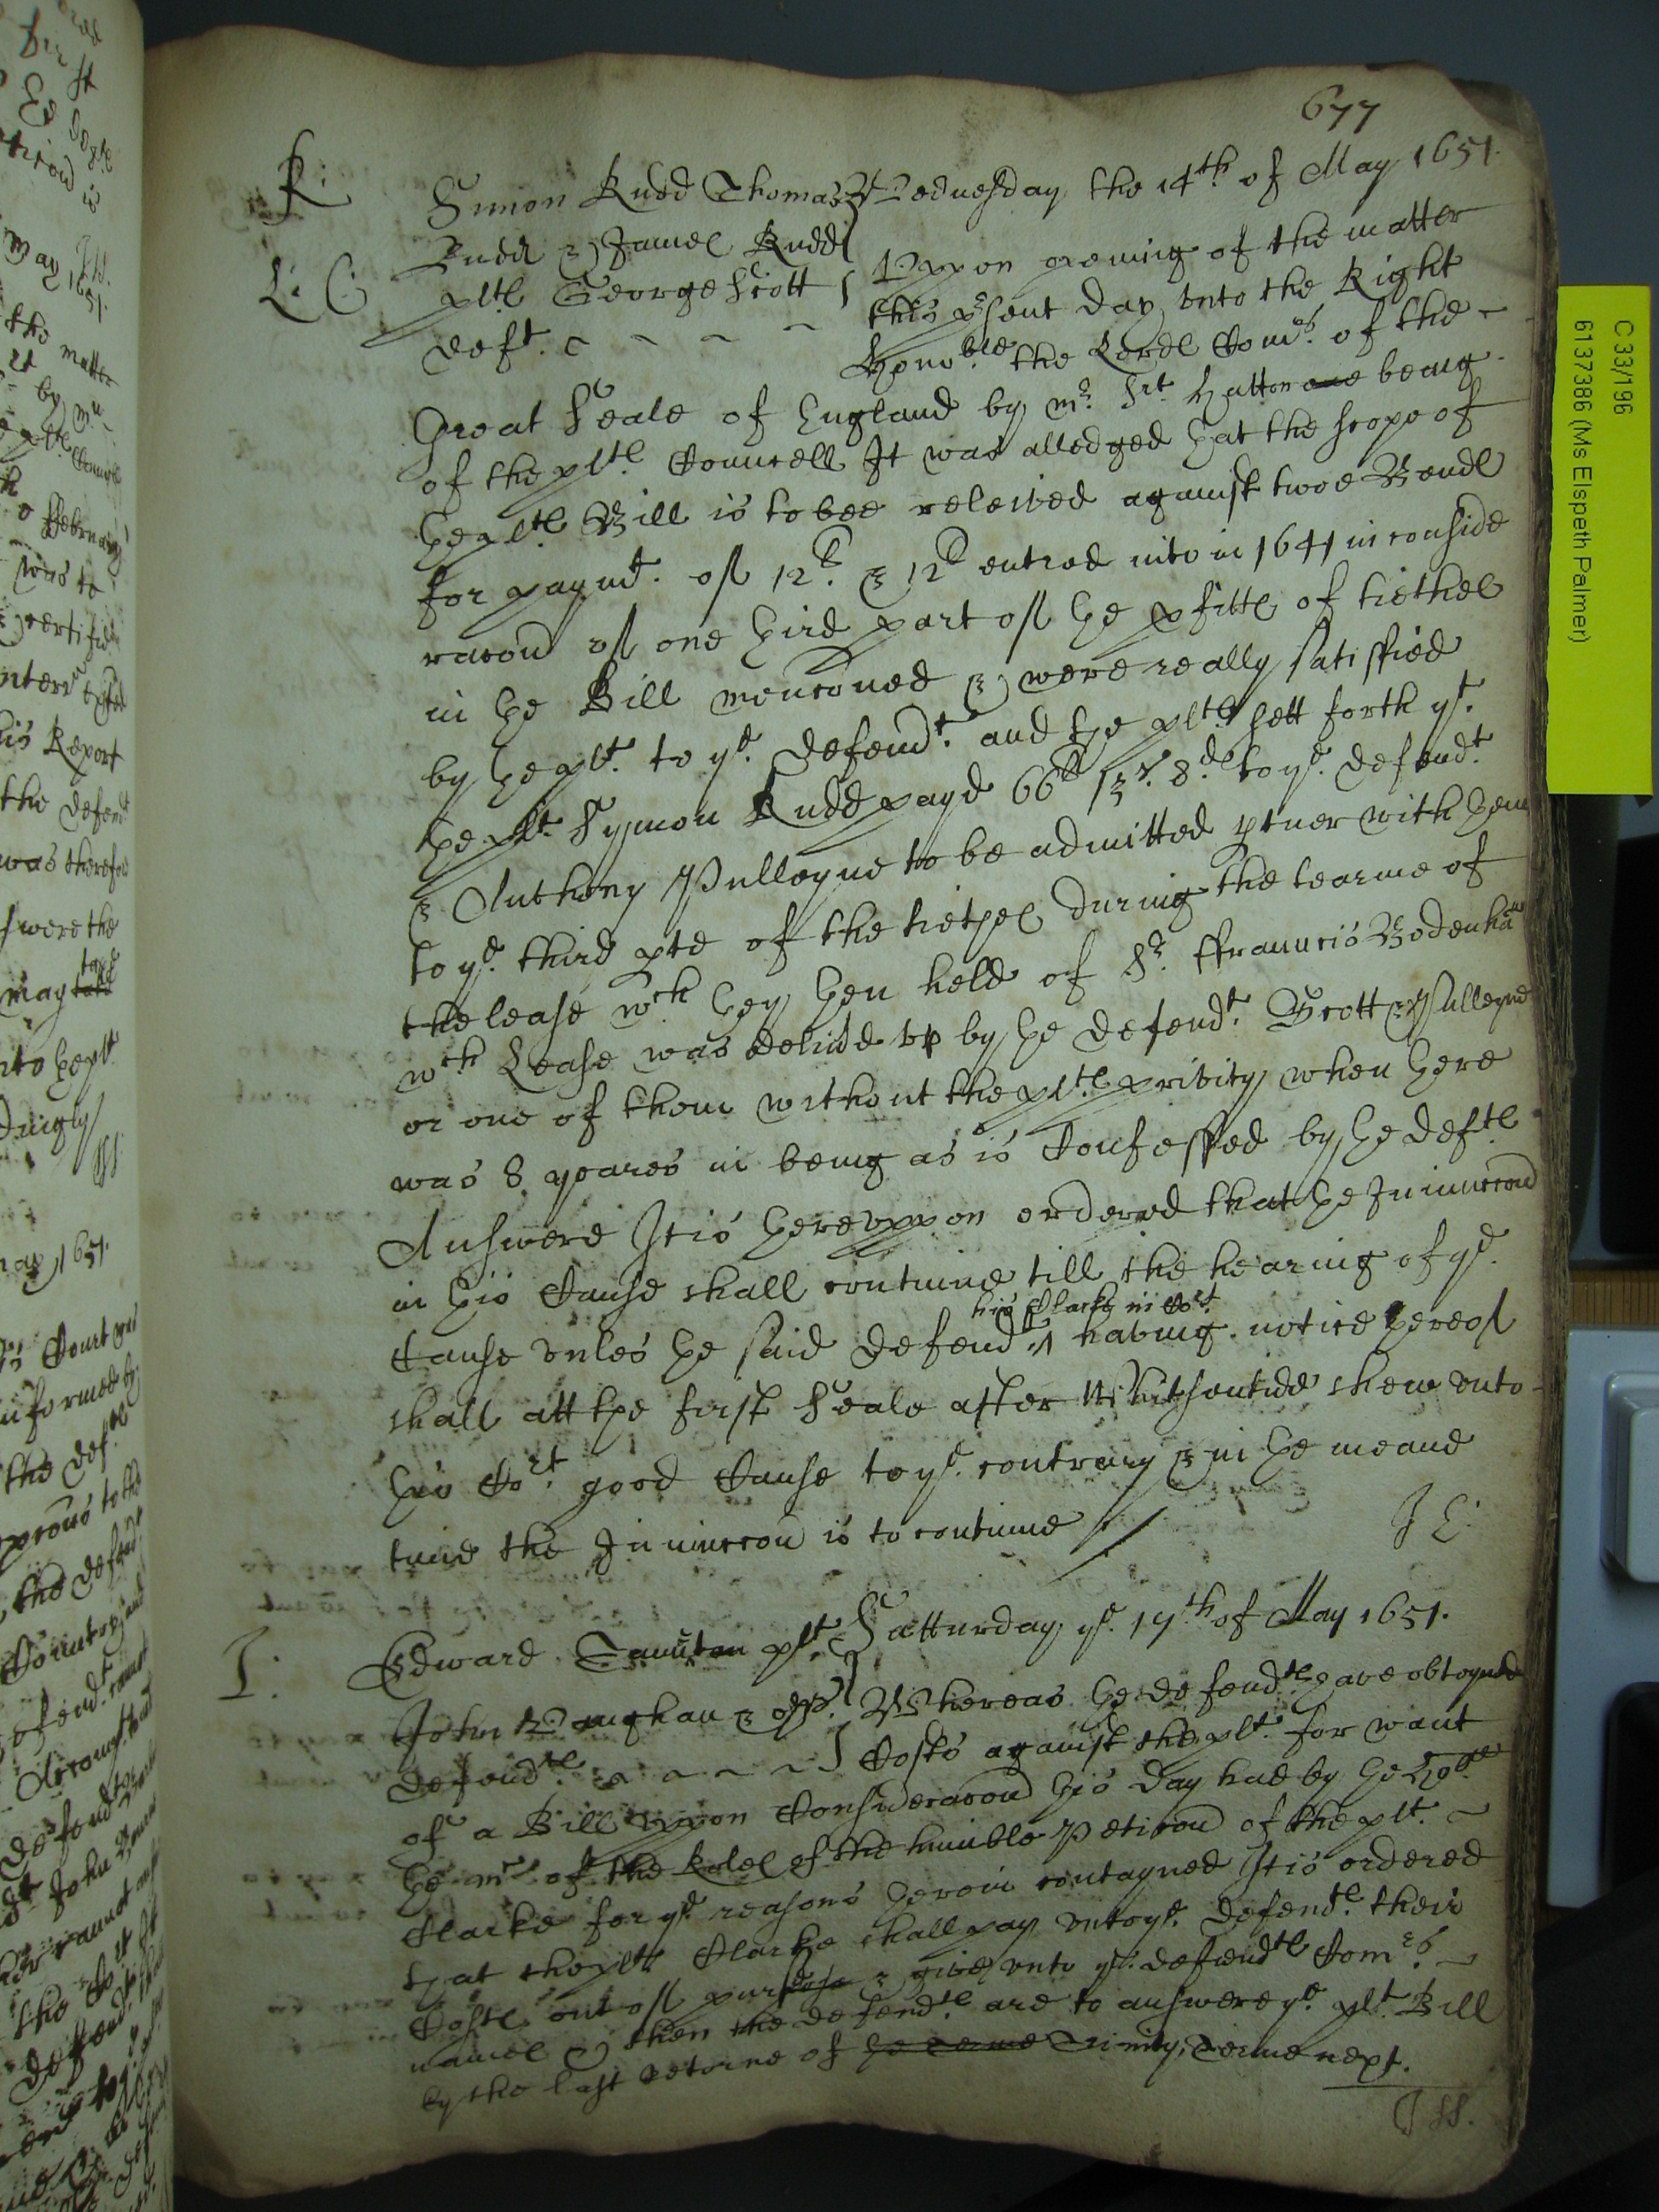 677
R:
L: C:
Simon Rudd Thomas
Rudd & James Rudd
pltes George Scott
deft.
Wednesday the 14th of May 1651.
Vppon opening of the matter
this present day vnto the Right
Honoble the Lordes Comrs of the
Great Seale of England by mr Srt Hatton one being
of the pltes Councell It was alledged that the scope of
the pltes Bill is to bee releived against twoe Bondes
for paymt. of 12l. & 12l entred into in 1641 in conside
racon of one third part of the pfitts of tiethes
in the Bill menconed & were really satisfied
by the plt. to ye. Defendt. and the pltes sett forth yt.
the plt. Symon Rudd payd 66l 13s. 8d. to ye. defendt.
& Anthony Pulleyne to be admitted ptner with them
to ye. third pte of the tiethes during the tearme of
the lease wch they then held of Sr. ffrauncis Bodenham
wch Lease was deliuđ vp by the defendt. Scott & Pulleyne
or one of them without the pltes privity when there
was 8 yeares in being as is Confessed by the deftes
Answere It is therevppon ordered that the Iniunccon
in this Cause shall continue till the hearing of ye.
Cause vnles the said defendt. his Clarke in Cort. having notice thereof
shall att the first Seale after Whitsontide shew vnto
this Cort good Cause to ye. contrary & in the meane
time the Iniunccon is to continue
J E:
T:
Edward Taunton plt.
John Vaughan & als.
defendtes
Satturday ye. 17th of May 1651.
Whereas the defendtes have obtayned
Costs against the plt. for want
of a Bill vppon Consideracon this day had by the Hoble
the mr of the Roles of the humble Peticon of the plt.
Clarke for ye. reasons therein contayned It is ordered
that the plts Clarke shall pay vnto ye. defendtes their
Costes out of purse & give vnto ye. defendtes Comrs.
names & then the defendtes are to answere ye. plt. Bill
by the last retorne of the terme Trinity Terme next.
J SS.
C 33/196
6137386 (Ms Elspeth Palmer)